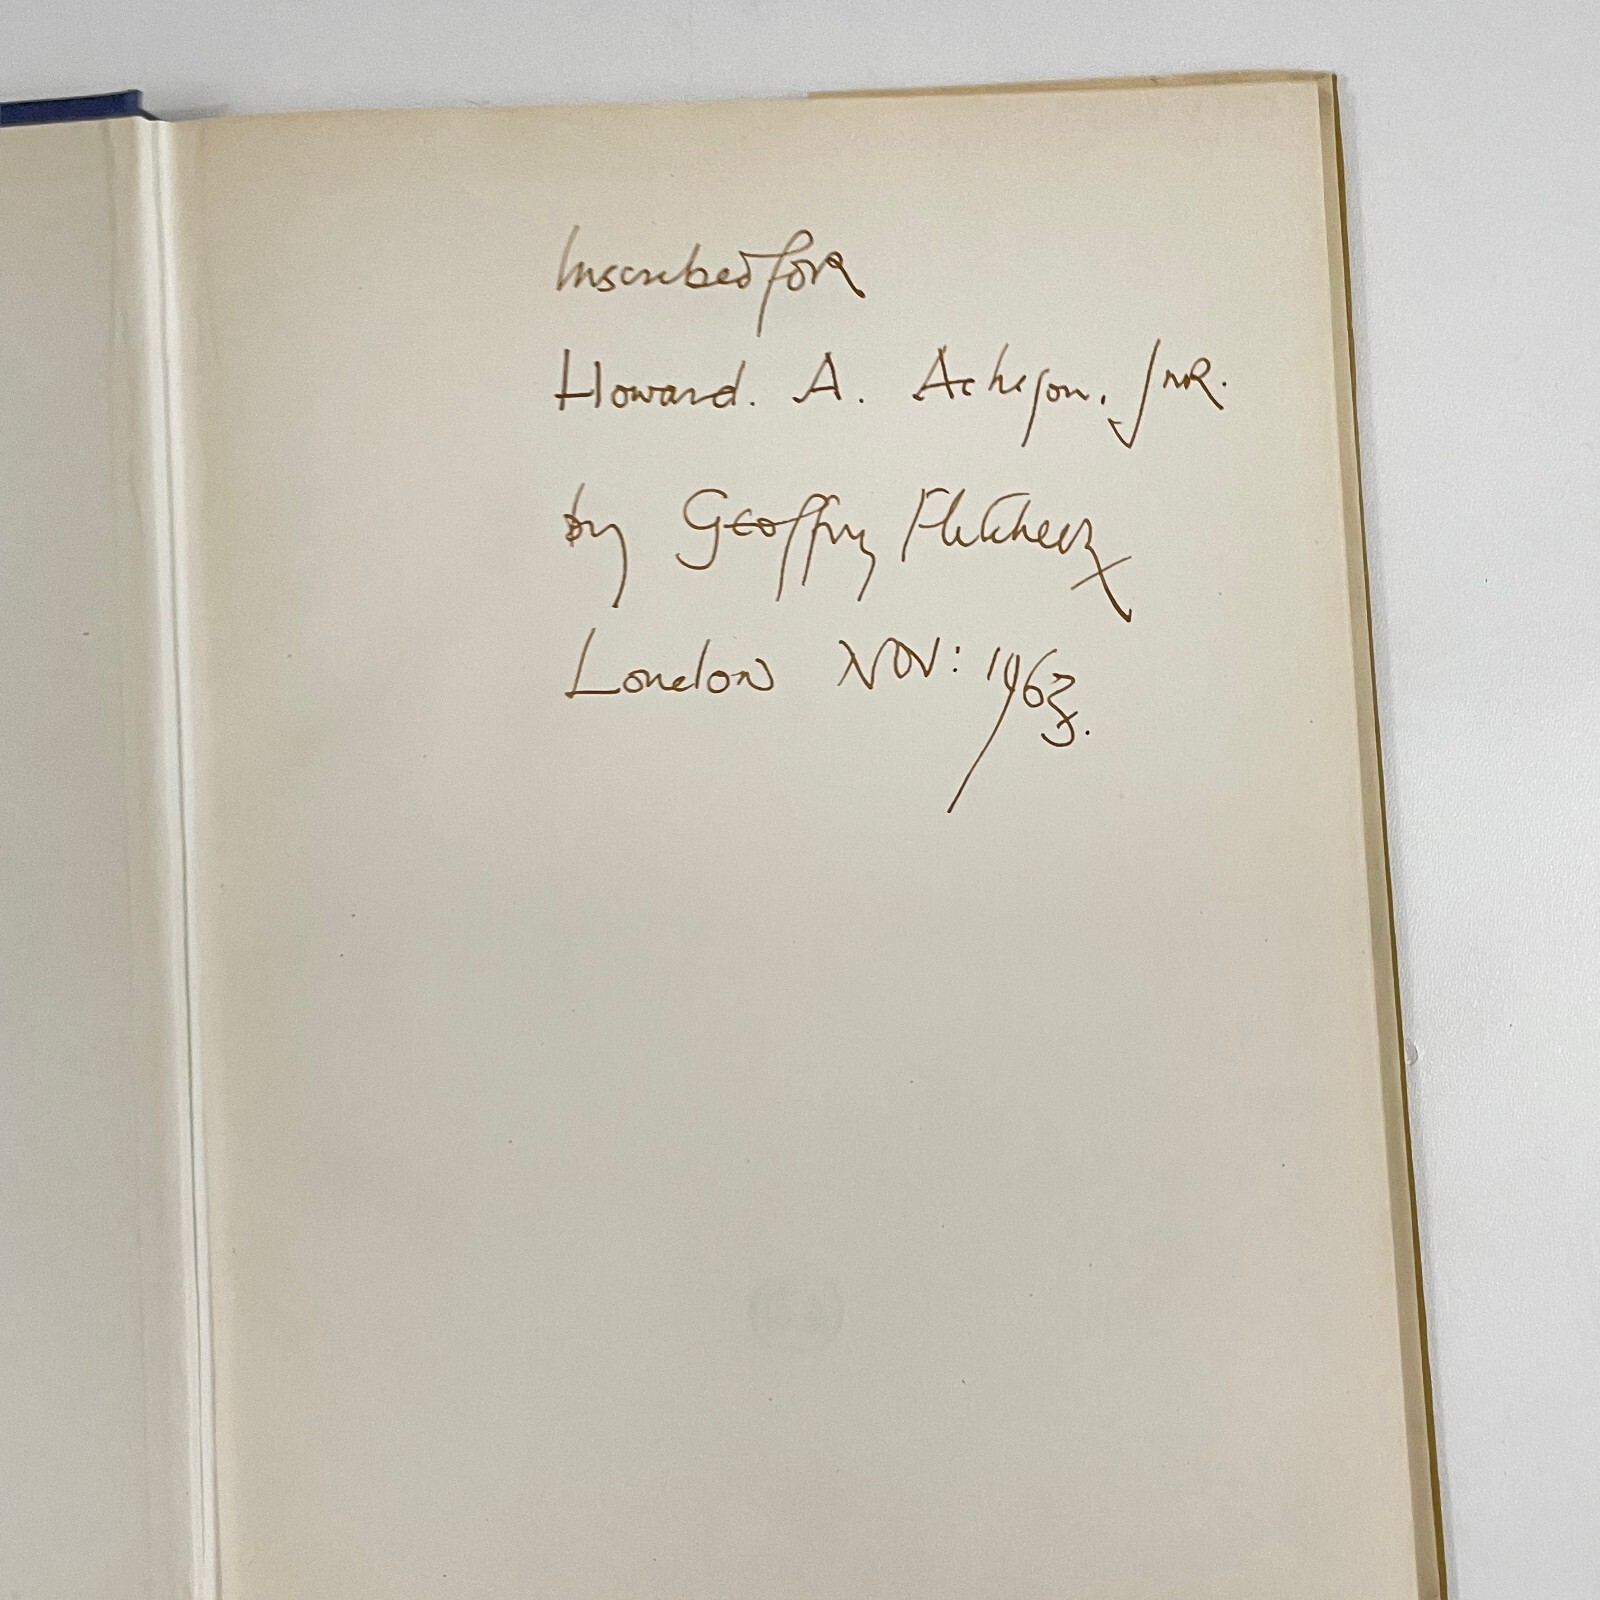 Inscribed for
Howard. A. Acheson. Jnr.
by Geoffrey Fletcher
London Nov: 1963.